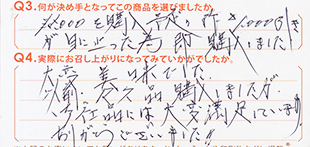 Q3.何が決め手となってこの商品を選びましたか
30000を購入予定の所 5,000引き
が目に止った為 即 購入しました
Q4.実際にお召し上がりになってみていかがでしたか。
大変 美味でした。
以前、 品 購入しましたが
品には大変満足しています
ありがとうございました!!